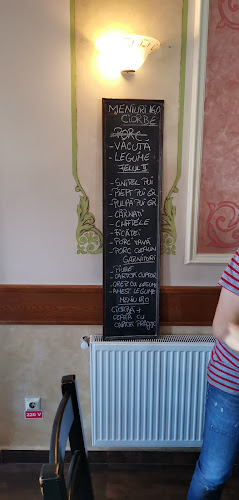 MENIURI
CIORBE
PORC
- VACUTA
- LEGUME
FELUL II
- SNITEL PUI
- PIEPT PUI GR
- PULPA PUI GR
- CÂRNATI
- CHIFTELE
- FICATEI
- PORC TAVĂ
- PORC
GARNITURI
- PIURE
- CARTOFI CUPTOR
- OREZ CU LEGUME
- AMES. LEGUME
MENIU
CIORBĂ +
CEAFĂ CU
CARTOFI PRĂJIȚI
220 V